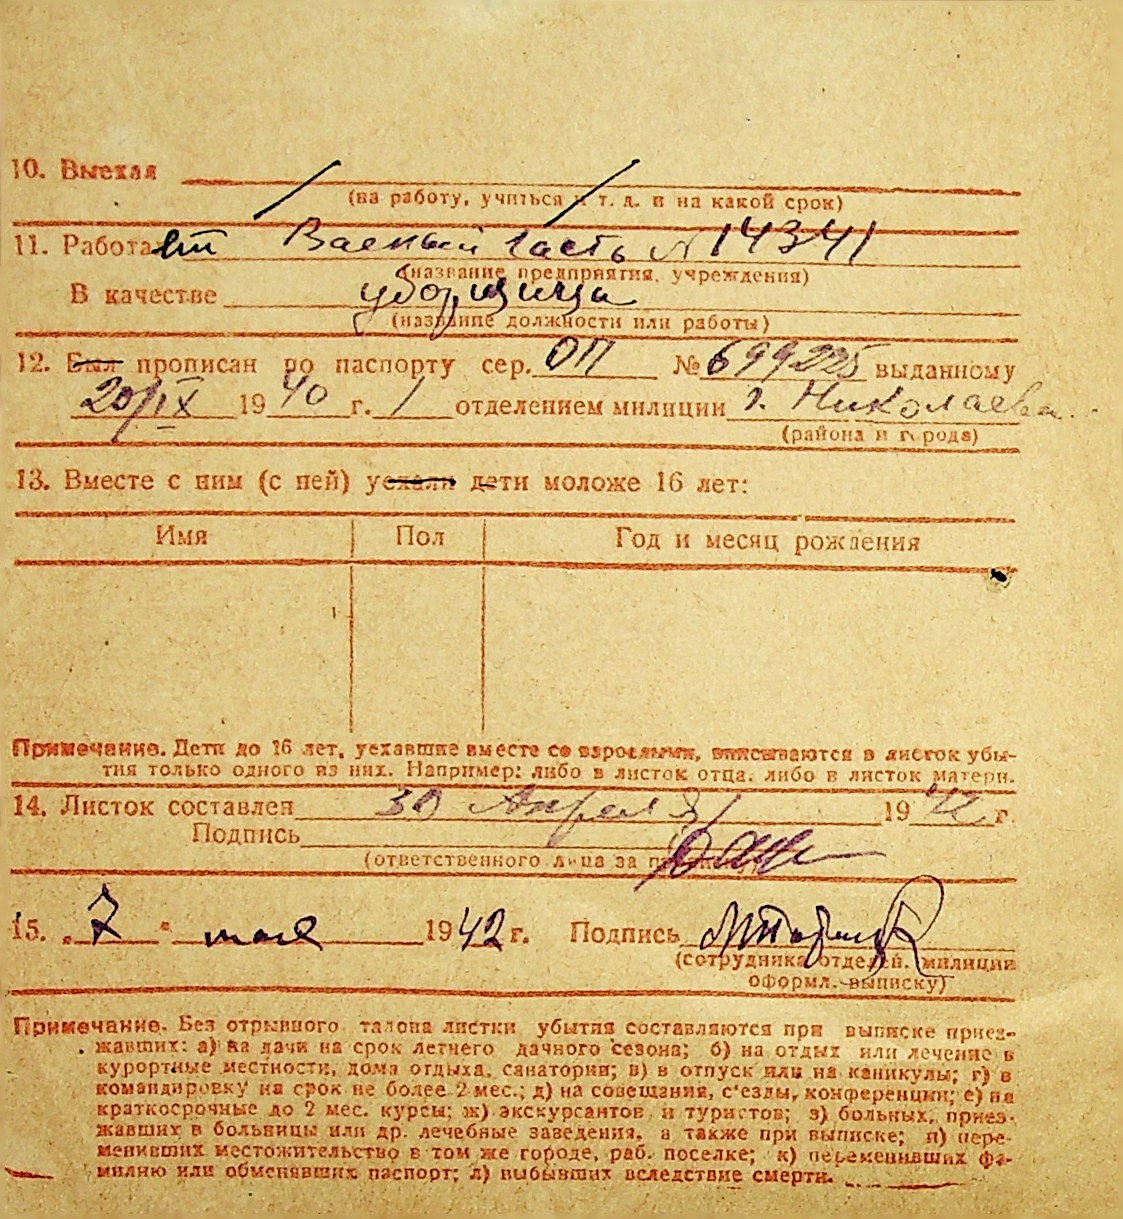 10. Выехал
(на работу, учиться и т. д. и на какой срок)
11. Работает Военый Часть N 14341
(название предприятия, учреждения)
В качестве уборщица
(название должности или работы)
12. Был прописан по паспорту сер. ОП № 699225 выданному
20/IX 1940 г. 1 отделением милиции г. Николаева
(района и города)
13. Вместе с ним (с ней) уехали дети моложе 16 лет:
Имя Пол Год и месяц рождения
Примечание. Дети до 16 лет, уехавшие вместе со взрослыми, вписываются в листок убы-
тия только одного из них. Например: либо в листок отца, либо в листок матери.
14. Листок составлен 30 Апреля 1942 г.
Подпись
(ответственного лица за
15. „7" мая 1942 г. Подпись
(сотрудника отделен. милиции
оформл. выписку)
Примечание. Без отрывного талона листки убытия составляются при выписке приез-
жавших: а) на дачи на срок летнего дачного сезона; б) на отдых или лечение в
курортные местности, дома отдыха, санатории; в) в отпуск или на каникулы; г) в
командировку на срок не более 2 мес.; д) на совещания, с'езды, конференции; е) на
краткосрочные до 2 мес. курсы; ж) экскурсантов и туристов; з) больных, приез-
жавших в больницы или др. лечебные заведения, а также при выписке; и) пере-
менивших местожительство в том же городе, раб. поселке; к) переменивших фа-
милию или обменявших паспорт; л) выбывших вследствие смерти.